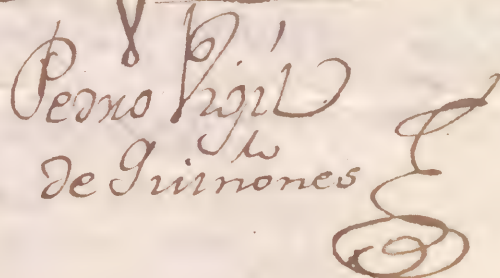 Pedro Vigil
de Quinones